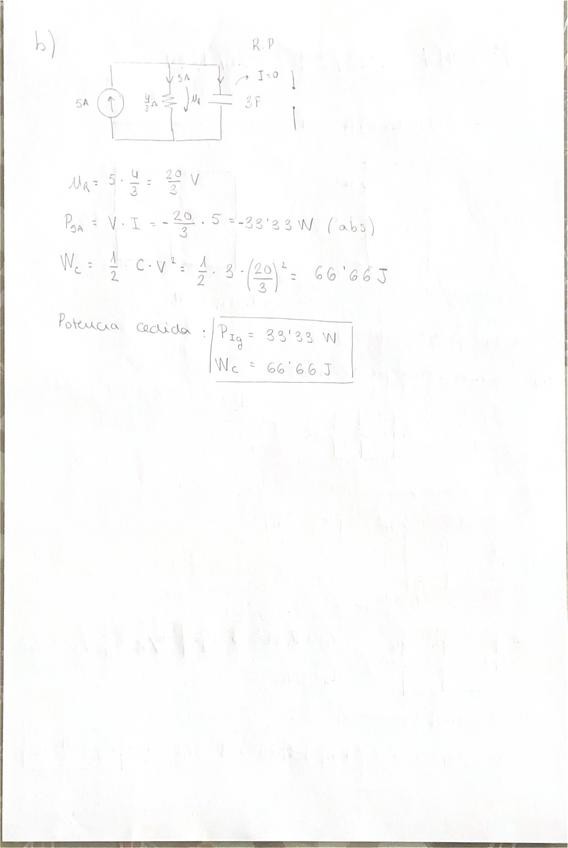 b)
R.P
5A
I=0
5A
4/3 Ω
u_R
3F
u_R = 5 · 4/3 = 20/3 V
P_5A = V · I = -20/3 · 5 = -33'33 W (abs)
W_C = 1/2 C · V² = 1/2 · 3 · (20/3)² = 66'66 J
Potencia cedida : P_Ig = 33'33 W
W_C = 66'66 J